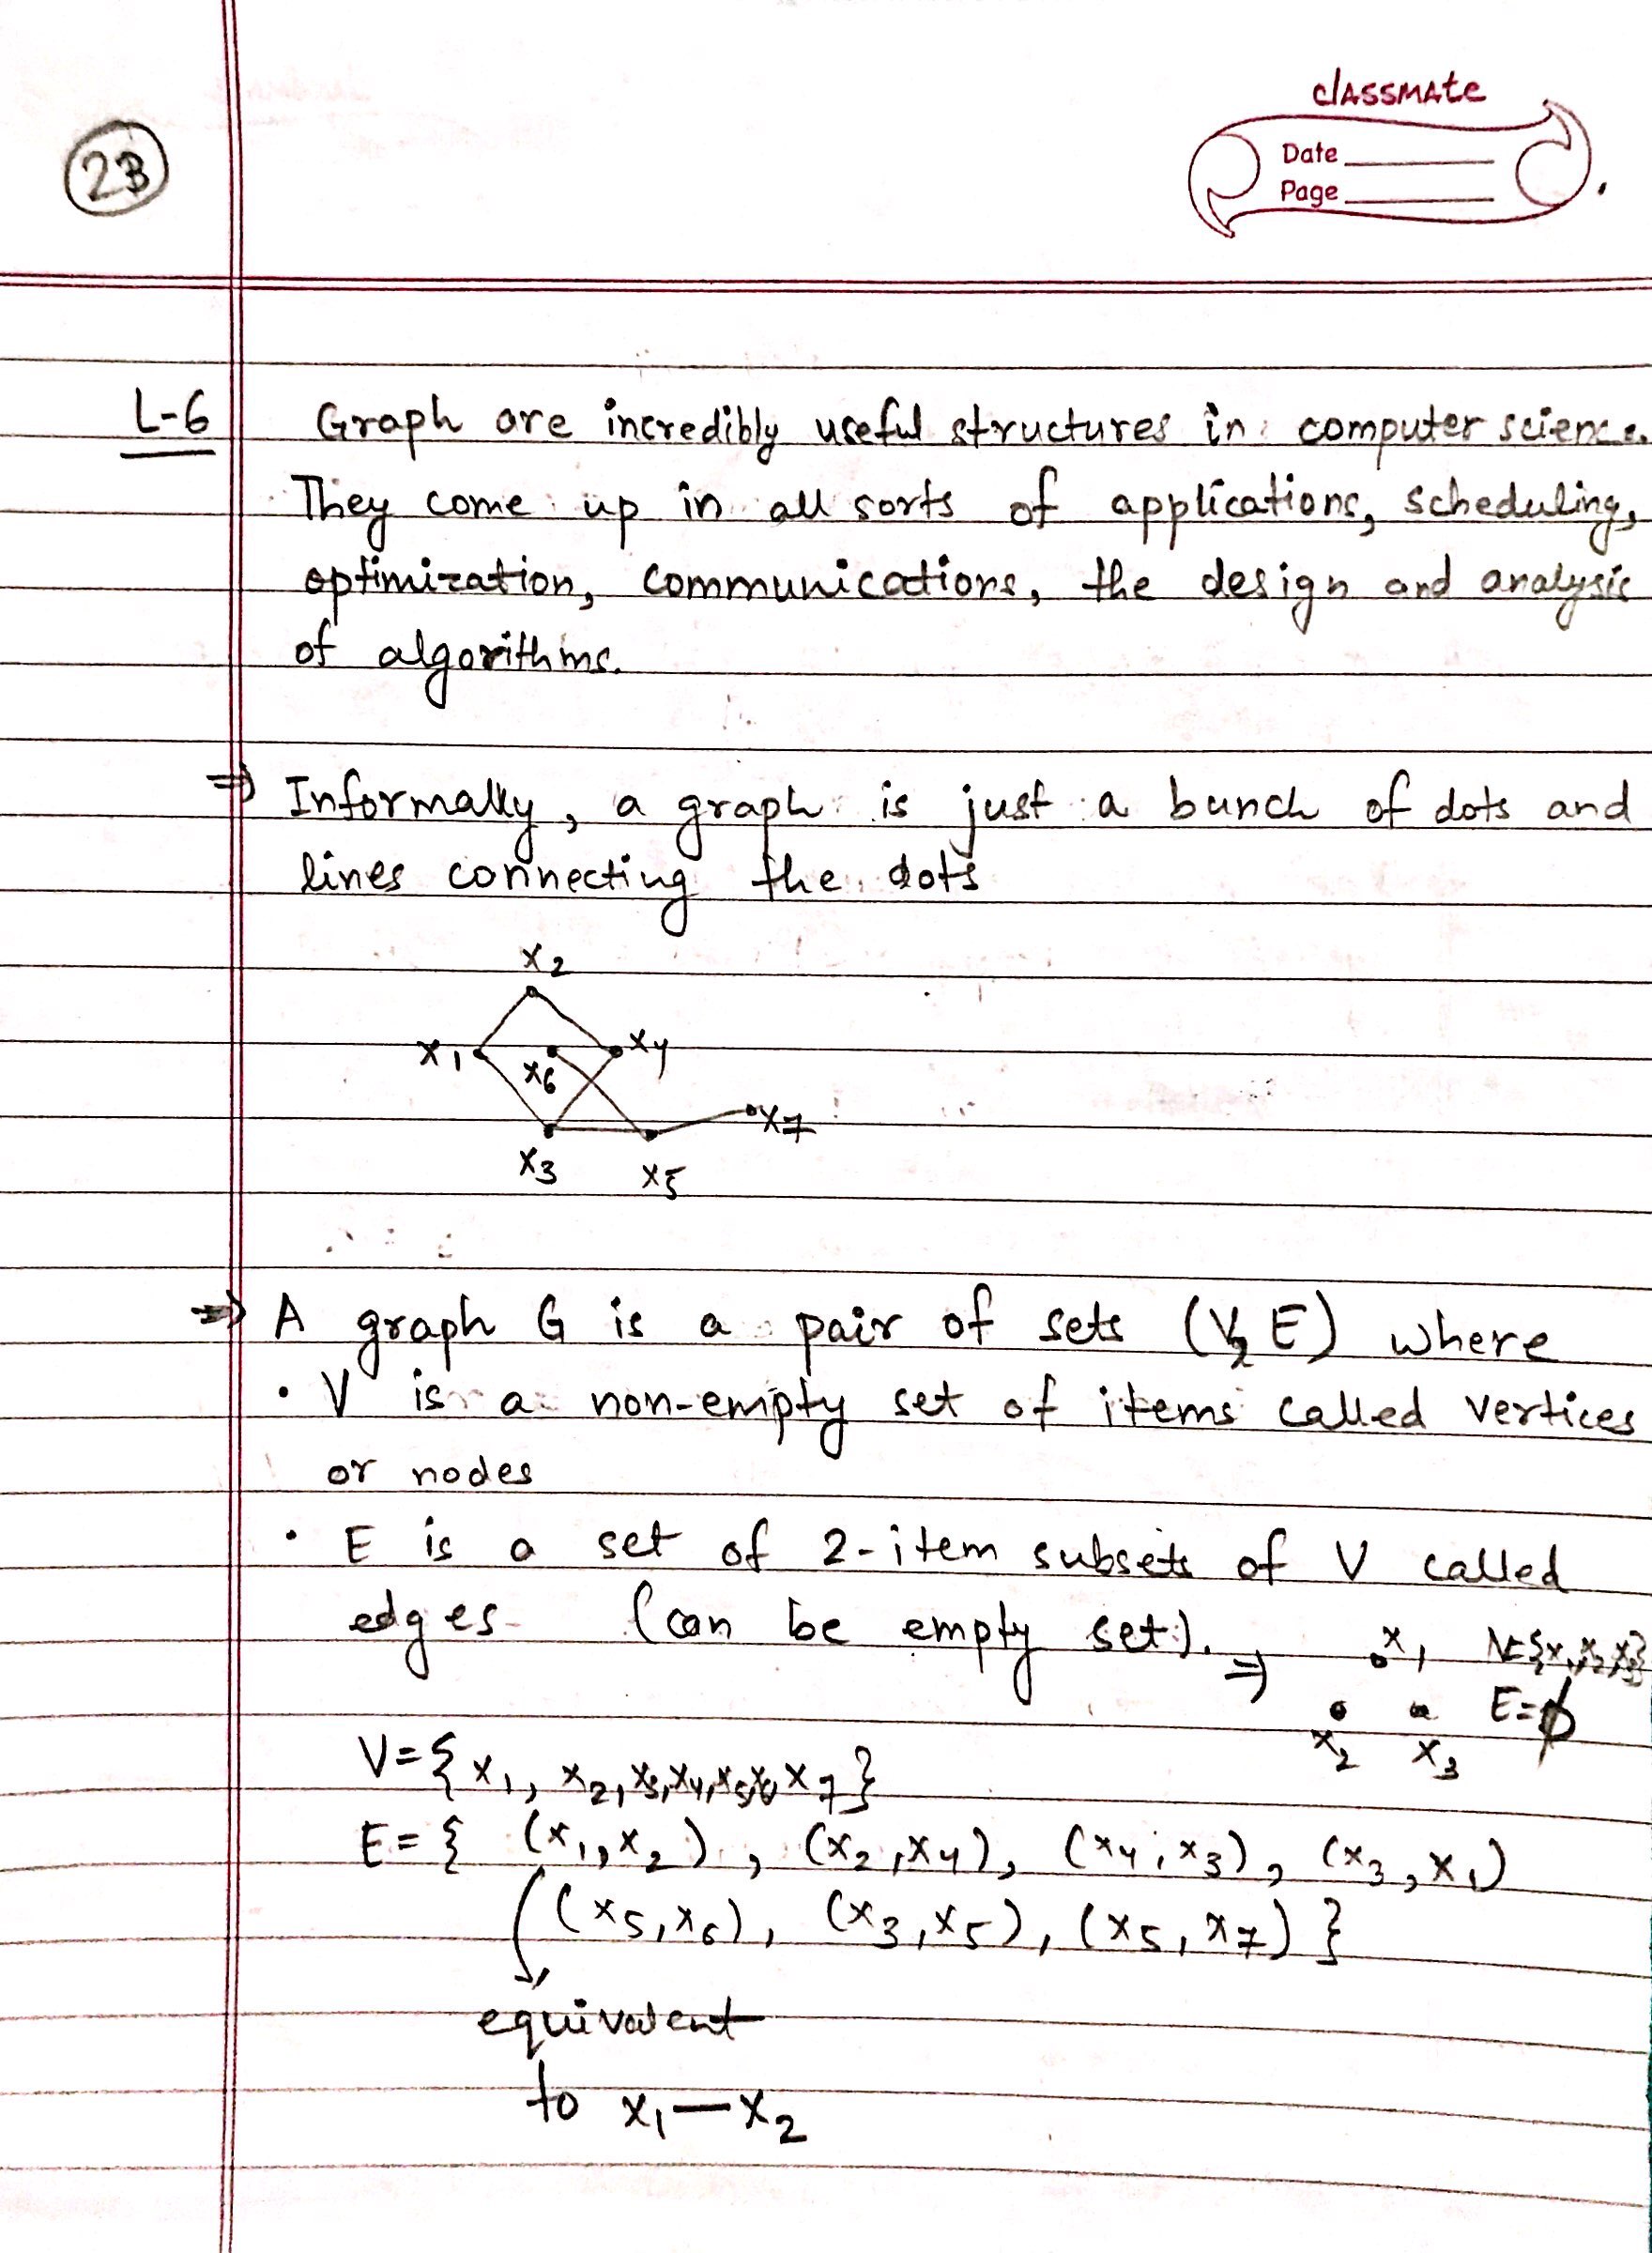 classmate
Date
Page
23
L-6 Graph are incredibly useful structures in computer science.
They come up in all sorts of applications, scheduling,
optimization, communications, the design and analysis
of algorithms.
⇒ Informally, a graph is just a bunch of dots and
lines connecting the dots
x2
x1 x6 x4
x7
x3 x5
⇒ A graph G is a pair of sets (V, E) where
• V is a non-empty set of items called vertices
or nodes
• E is a set of 2-item subsets of V called
edges (can be empty set). ⇒ x1 V={x1,x2,x3}
E=ϕ
x2 x3
V={x1, x2, x3, x4, x5, x6, x7}
E={ (x1,x2), (x2,x4), (x4,x3), (x3,x1)
(x5,x6), (x3,x5), (x5,x7) }
equivalent
to x1—x2